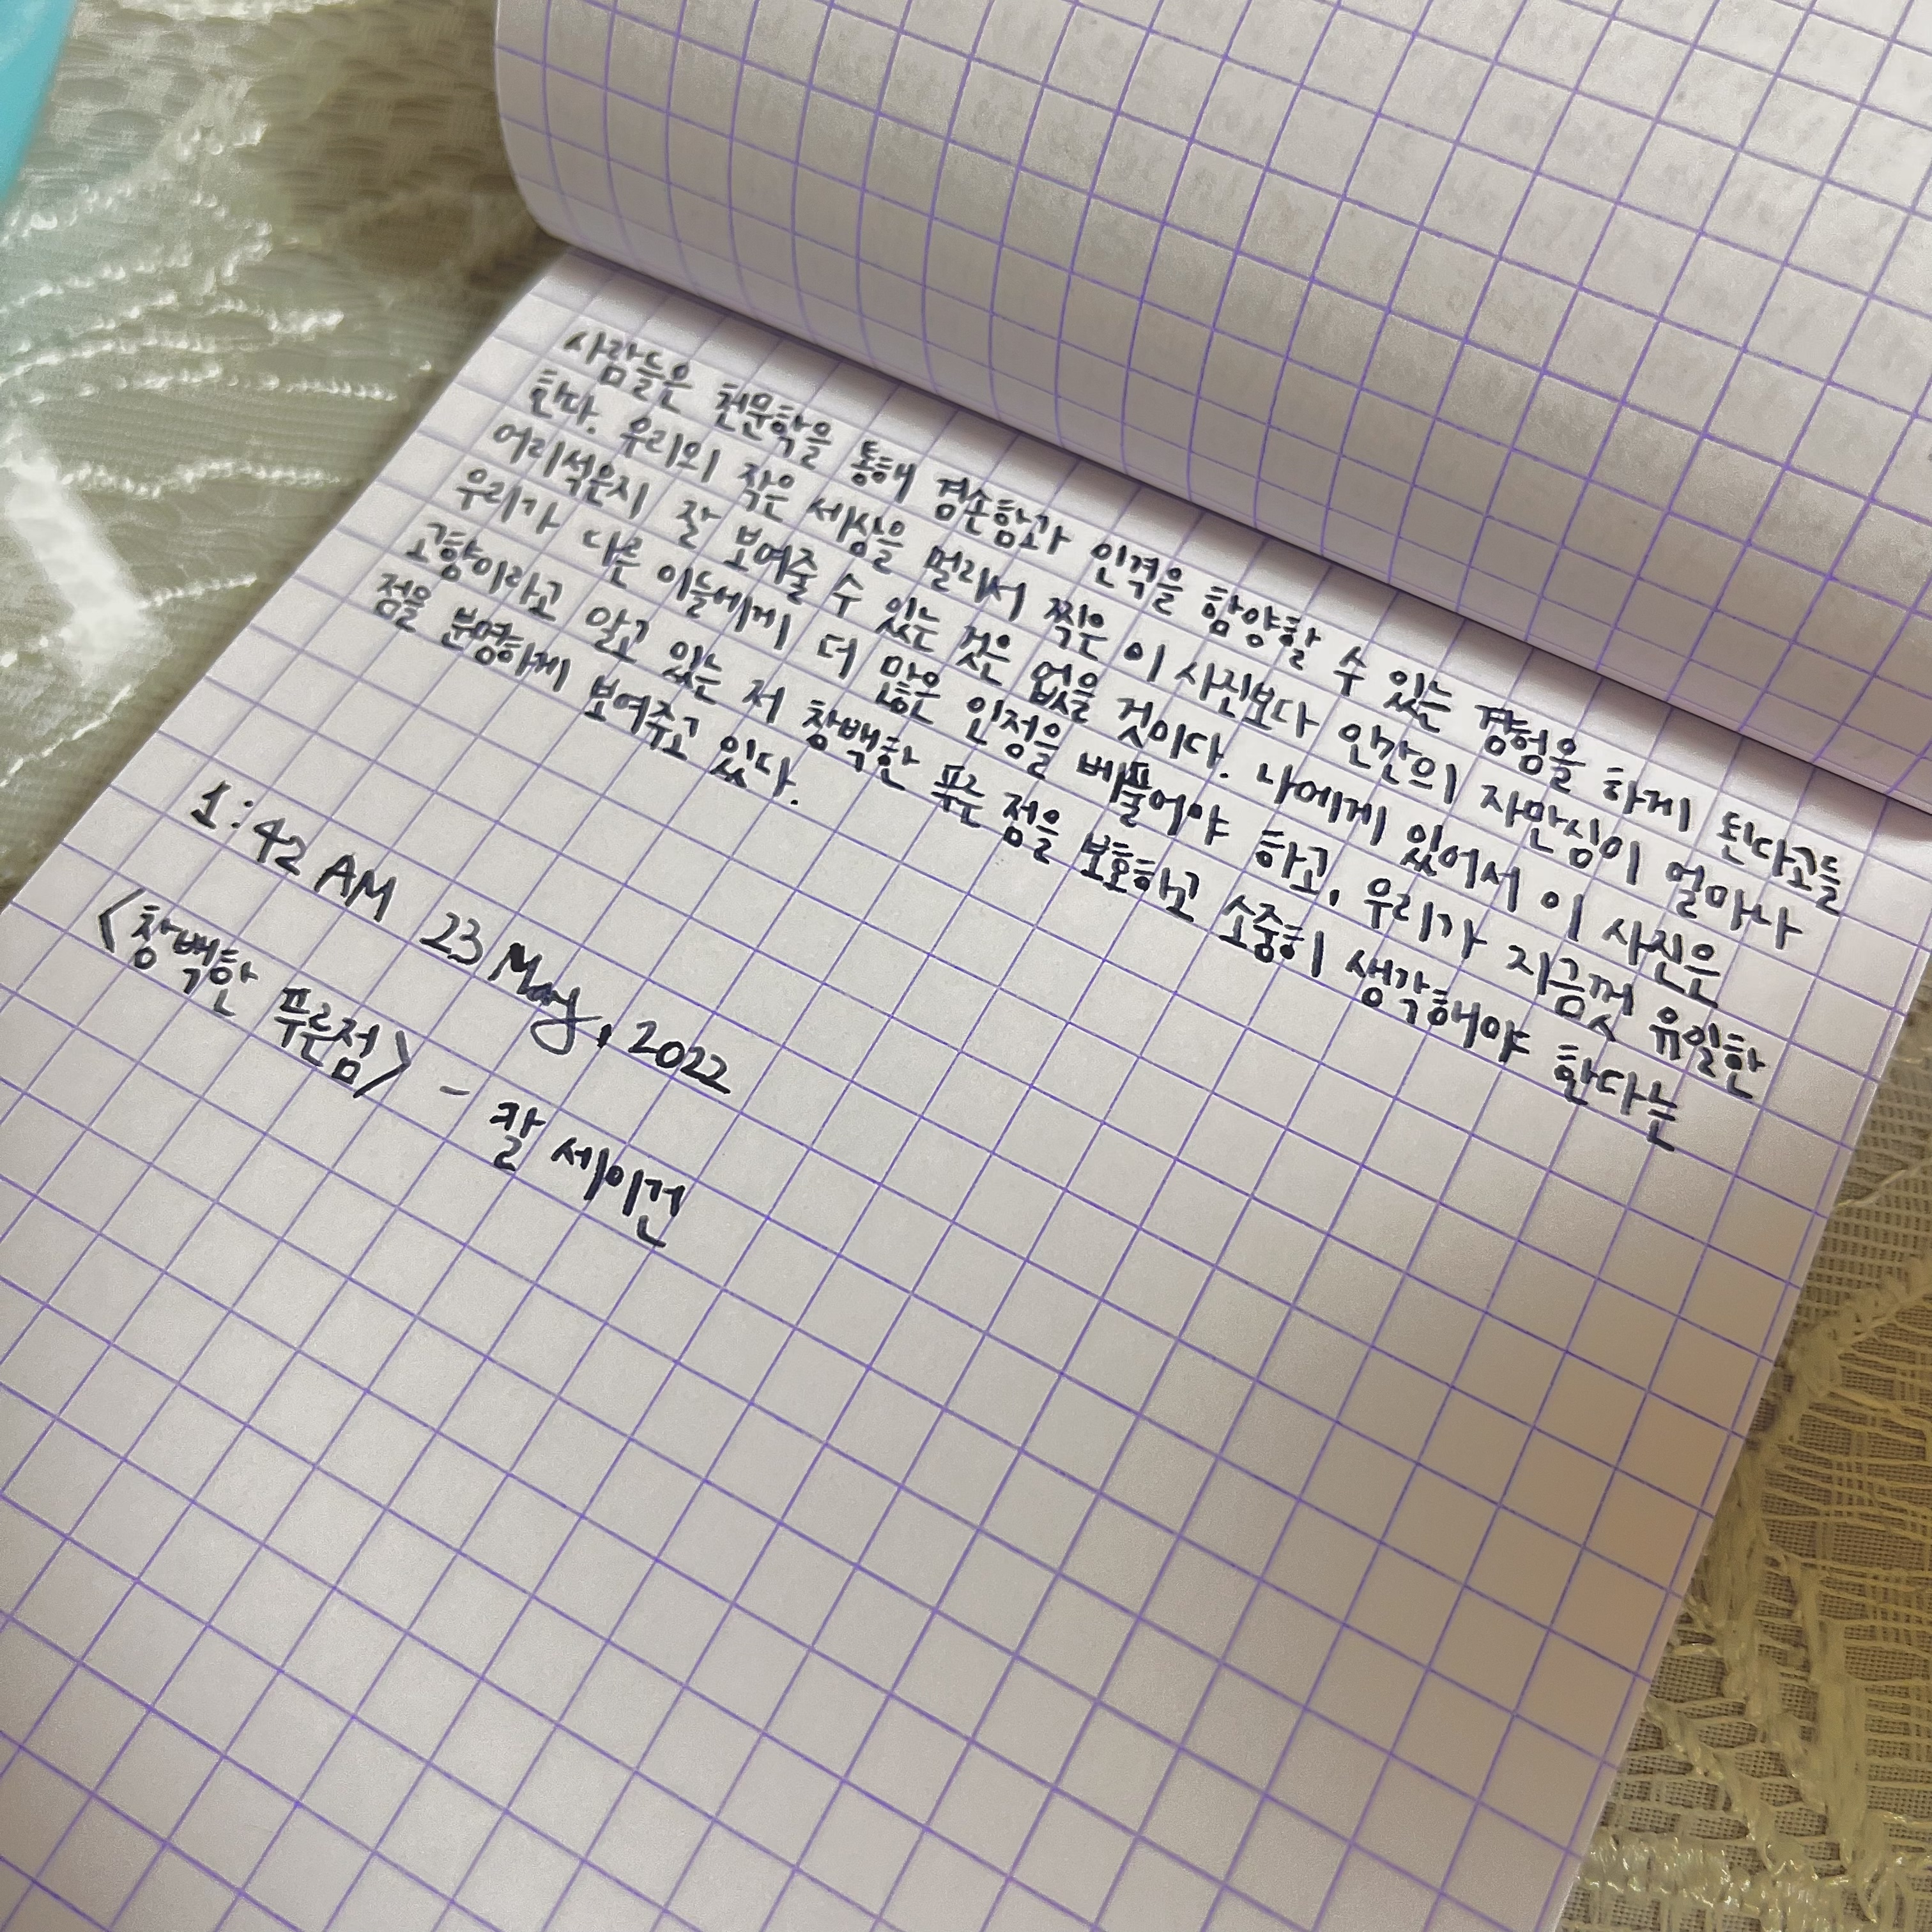 사람들은 천문학을 통해 겸손함과 인격을 함양할 수 있는 경험을 하게 된다고들
한다. 우리의 작은 세상을 멀리서 찍은 이 사진보다 인간의 자만심이 얼마나
어리석은지 잘 보여줄 수 있는 것은 없을 것이다. 나에게 있어서 이 사진은
우리가 다른 이들에게 더 많은 인정을 베풀어야 하고, 우리가 지금껏 유일한
고향이라고 알고 있는 저 창백한 푸른 점을 보호하고 소중히 생각해야 한다는
점을 분명하게 보여주고 있다.
1:42 AM 23 May, 2022
<창백한 푸른점> - 칼 세이건